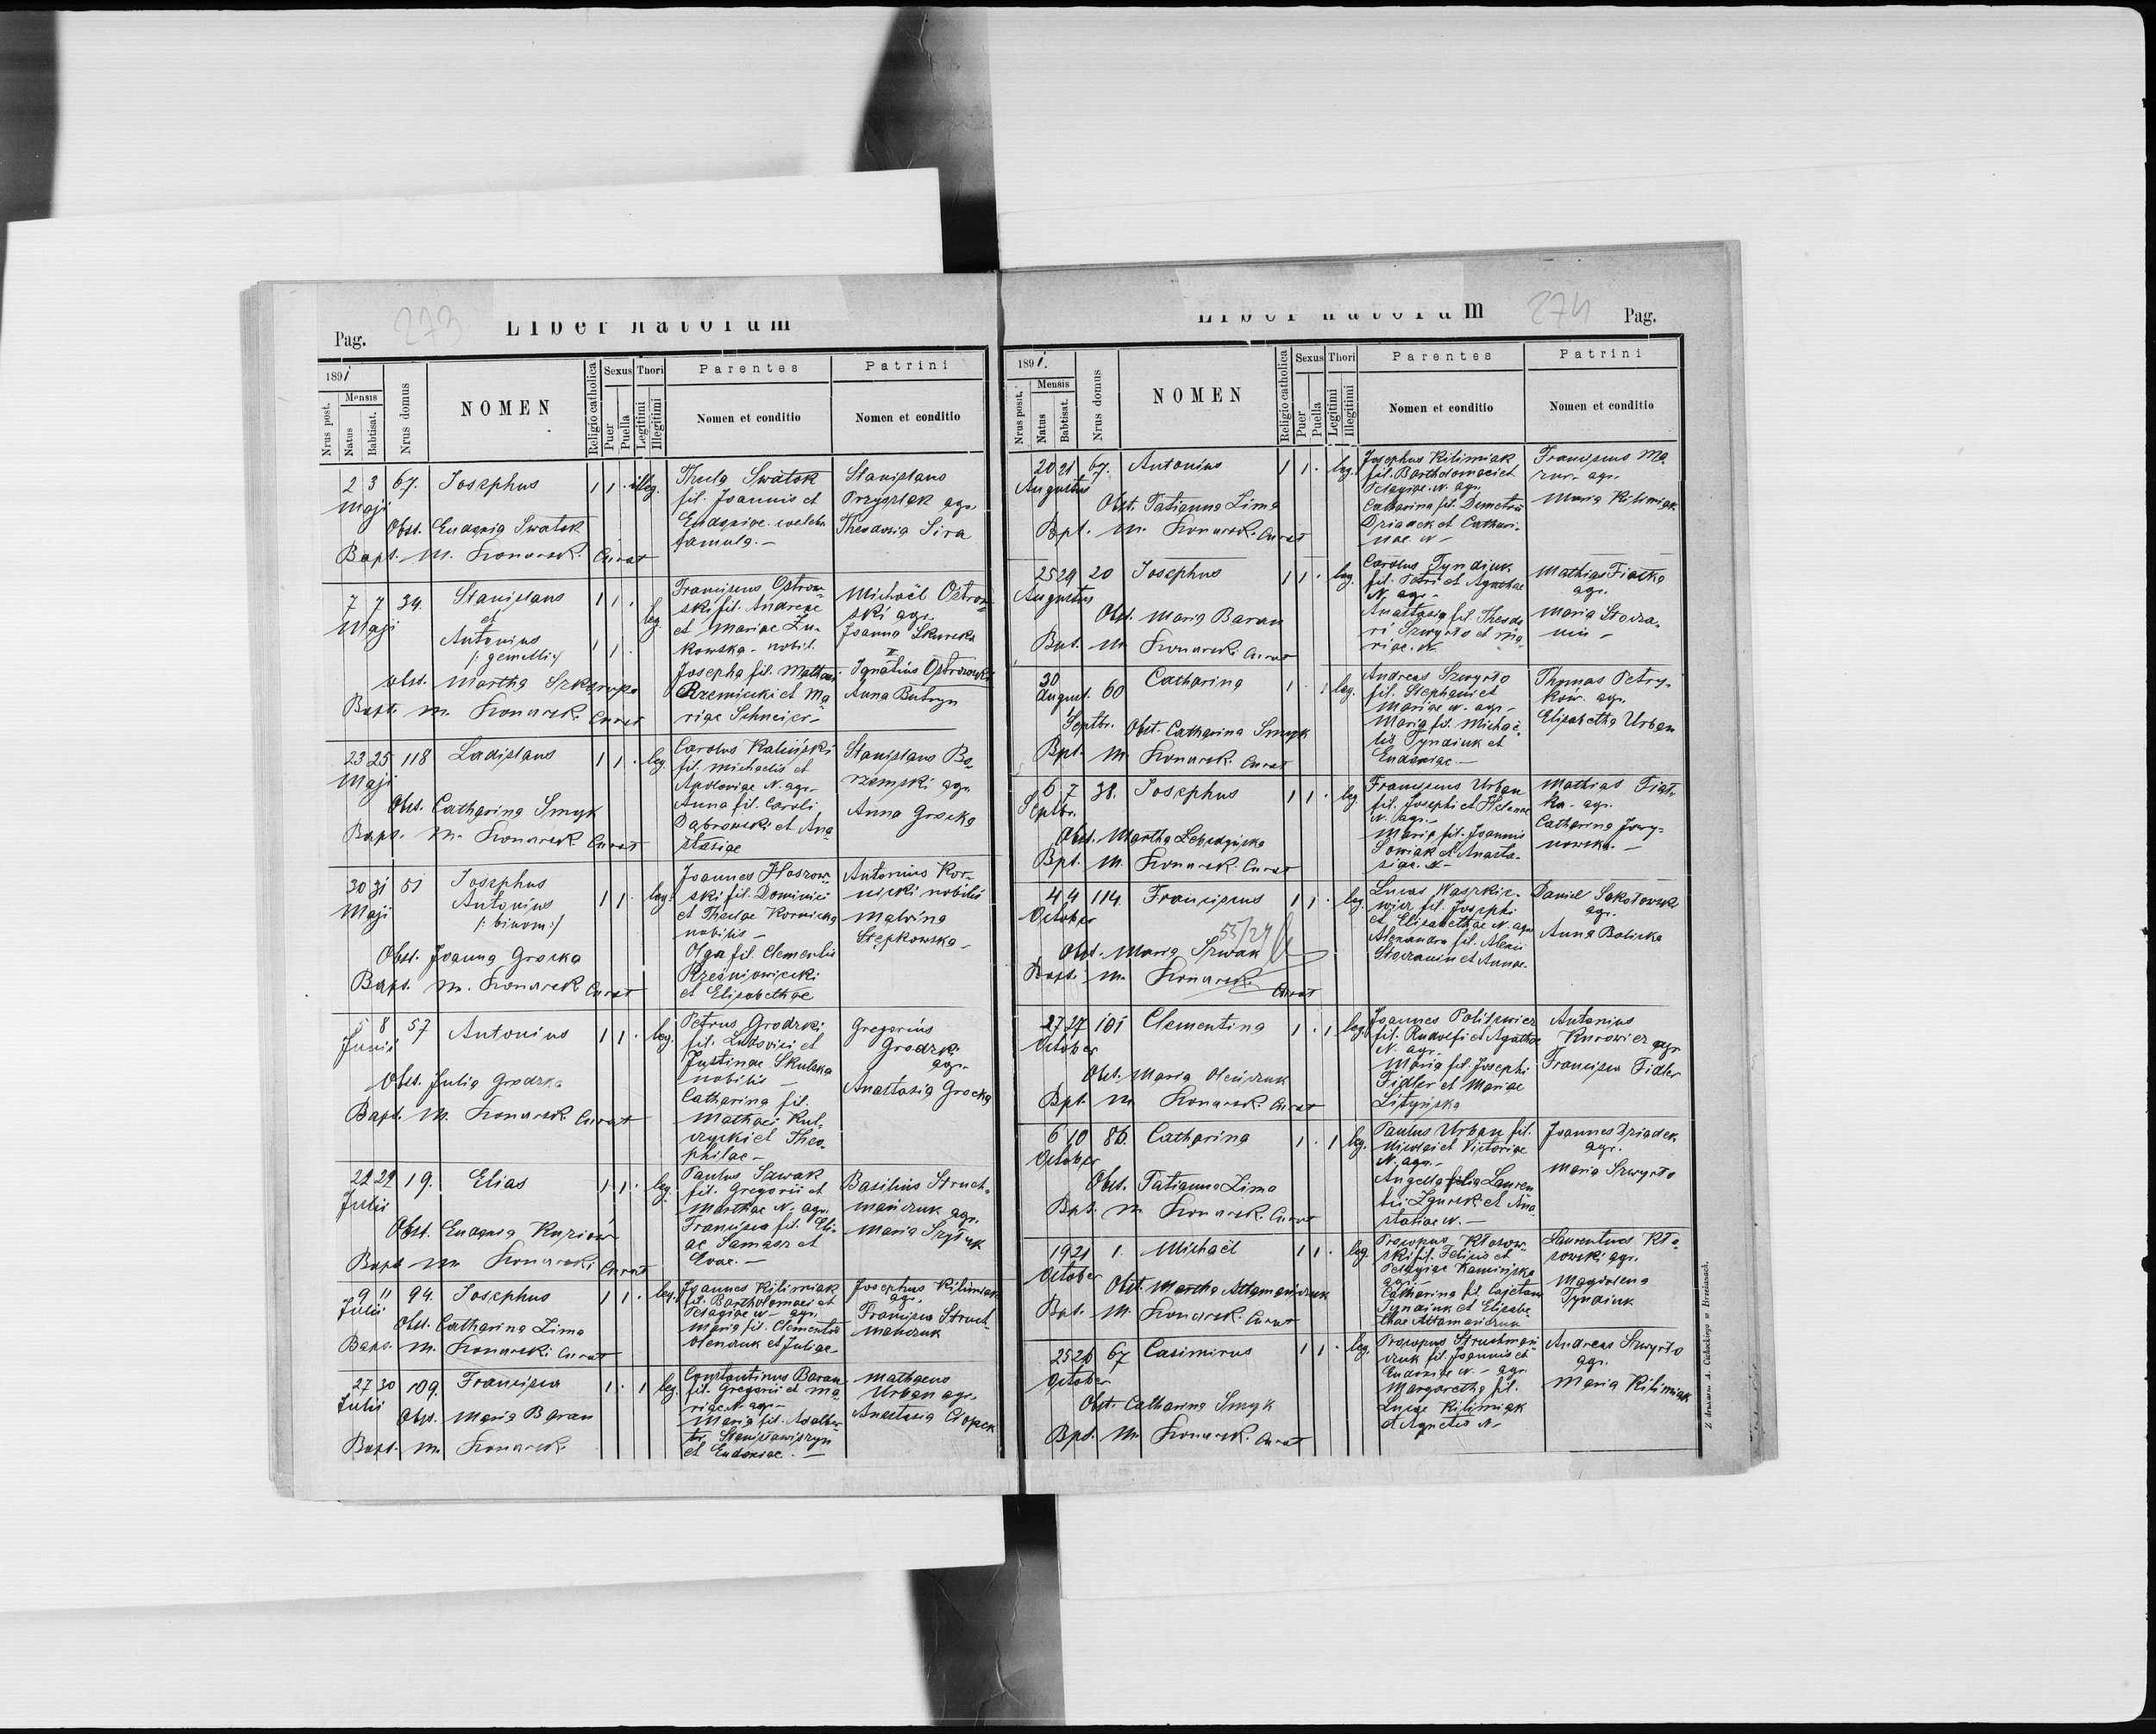 Pag. 273 Liber natorum
1891
Nrus post.
Mensis
Natus
Babtisat.
Nrus domus
NOMEN
Religio catholica
Sexus
Puer
Puella
Thori
Legitimi
Illegitimi
Parentes
Nomen et conditio
Patrini
Nomen et conditio
2 3 67. Josephus 1 1 . illeg.
Maji
Obst. Eudoxia Swatok
Bapt. M. Konarski Curat
Thecla Swatok
fil. Joannis et
Eudoxiae
famula.—
Stanislaus
Przyszlak agr.
Theodosia Sira
7 7 34. Stanislaus 1 1 . leg.
Maji
et
Antonius 1 1 .
/: gemelli :/
obst. Martha
Bapt. M. Konarski Curat
Franciscus Ostrow-
ski fil. Andreae
et Mariae Żu-
kowska - nobil.
Josepha fil. Mathaei
Rzemiński et Ma
riae Schneier-
Michaël Ostrow-
ski agr.
Joanna Skurska
II
Ignatius Ostrowski
Anna Butryn
23 25 118 Ladislaus 1 1 . leg.
Maji
Obst. Catharina Smyk
Bapt. M. Konarski Curat
Carolus Kaliński
fil. Michaelis et
Apoloniae N. agr.
Anna fil. Caroli
Dąbrowski et Ana
stasiae
Stanislaus Bo-
rzemski agr.
Anna Grocka
30 31 51 Josephus 1 1 . leg.
Maji
Antonius
/: binom :/
Obst. Joanna Grocka
Bapt. M. Konarski Curat
Joannes Hoszow-
ski fil. Dominici
et Theclae Kornicka
nobilis —
Olga fil. Clementis
Rześniowiecki
et Elisabethae
Antonius Kor-
nicki nobilis
Malvina
Stępkowska-
5 8 57 Antonius 1 1 . leg.
Junii
Obst. Julia Grodzka
Bapt. M. Konarski Curat
Petrus Grodzki
fil. Ludovici et
Justinae Skulska
nobilis —
Catharina fil.
Mathaei Kul-
czycki et Theo-
philae —
Gregorius
Grodzki
agr.
Anastasia Grocka
22 29 19. Elias 1 1 . leg.
Julii
Obst. Eudoxia Kuziów
Bapt. M. Konarski Curat
Paulus Szwak
fil. Gregorii et
Marthae N. agr.
Francisca fil. Eli-
ae Samasz et
Evae.—
Basilius Struch-
mańczuk agr.
Maria
9 11 94. Josephus 1 1 . leg.
Julii
Obst. Catharina Zima
Bapt. M. Konarski Curat
Joannes Kilimiak
fil. Bartholomaei et
Pelagiae N- agr.
Maria fil. Clementis
Olenczuk et Juliae-
Josephus Kilimiak
agr.
Francisca Struch-
mańczuk
27 30 109. Francisca 1 . 1 leg.
Julii
Obst. Maria Baran
Bapt. M. Konarski
Constantinus Baran
fil. Gregorii et Ma
riae N. agr-
Maria fil. Adalber-
ti Stanisławiszyn
et Eudoxiae.—
Mathaeus
Urban agr.
Anastasia Ciopek
Liber natorum 274 Pag.
1891.
Nrus posit.
Mensis
Natus
Babtisat.
Nrus domus
NOMEN
Religio catholica
Sexus
Puer
Puella
Thori
Legitimi
Illegitimi
Parentes
Nomen et conditio
Patrini
Nomen et conditio
20 21 67. Antonius 1 1 . leg.
Augustus
Obst. Tatianna Zima
Bpt. M. Konarski Curat
Josephus Kilimiak
fil. Bartholomaei et
Pelagiae N. agr.
Catharina fil. Demetrii
Dziadek et Cathari-
nae N-
Franciscus Ma
zur- agr.
Maria Kilimiak
25 29 20 Josephus 1 1 . leg.
Augustus
Obst. Maria Baran
Bpt. M. Konarski Curat
Carolus Tyndiuk
fil. Petri et Agathae
N. agr-
Anastasia fil. Theodo
ri Szwyrło et Ma
riae. N.
Mathias Fiałka
agr.
Maria Stocza-
nin -
30
August. 60 Catharina 1 . 1 leg.
1
Septbr. Obst. Catharina Smyk
Bpt. M. Konarski Curat
Andreas Szwyrło
fil. Stephani et
Mariae N. agr-
Maria fil. Michaë-
lis Tyndiuk et
Eudoxiae.—
Thomas Petry-
ków. agr.
Elisabetha Urban
6 7 38. Josephus 1 1 . leg.
Septbr.
Obst. Martha Lebedyńska
Bpt. M. Konarski Curat
Franciscus Urban
fil. Josephi et Helenae
N. agr.-
Maria fil. Joannis
Sowiak et Anasta-
siae. N-
Mathias Fiał-
ka- agr.
Catharina
nowska.—
4 4 114 Franciscus 1 1 . leg.
October
55/24
Obst. Maria Szwak
Bapt. M. Konarski Curat
Lucas Waszkie-
wicz fil. Josephi
et Elisabethae N. agr.
Alexandra fil. Alexii
Stoczanin et Annae.
Daniel Sokołowski
agr.
Anna Bolicka
27 27 101 Clementina 1 . 1 leg.
October
Obst. Maria Oleńczuk
Bpt. M. Konarski Curat
Joannes Poliszwiez
fil. Rudolfi et Agathae
N. agr.
Maria fil. Josephi
Fidler et Mariae
Lityńska
Antonius
Kurowicz agr
Francisca Fidler
6 10 86. Catharina 1 . 1 leg.
October
Obst. Tatianna Zima
Bpt. M. Konarski Curat
Paulus Urban fil.
Nicolai et Victoriae
N. agr.-
Angella filia Lauren
tii Zgurski et Ana
stasiae N.—
Joannes Dziadek
agr.
Maria Szwyrło
19 21 1. Michaël 1 1 . leg.
October
Obst. Martha Attamańczuk
Bpt. M. Konarski Curat
Procopus Kłosow-
ski fil. Felicis et
Pelagiae Kamińska
agr.-
Catharina fil. Cajetani
Tyndiuk et Elisabe-
thae Attamańczuk
Laurentius Kło-
sowski agr.
Magdalena
Tyndiuk
25 26 67 Casimirus 1 1 . leg.
October
Obst. Catharina Smyk
Bpt. M. Konarski Curat
Procopus Struchmań
czuk fil. Joannis et
Eudoxiae N- agr.
Margaretha fil.
Lucae Kilimiak
et Agnetis N-
Andreas Szwyrło
agr.
Maria Kilimiak
Z drukarni A. Cichockiego w Brzeżanach.